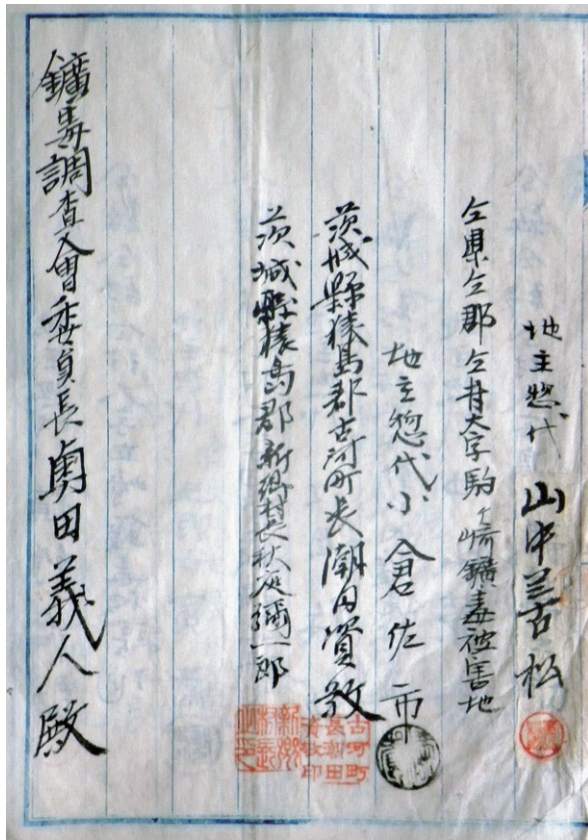 地主惣代 山中善松
仝県仝郡仝村大字駒ヶ崎鑛毒被害地
地主惣代小倉佐市
茨城縣猿島郡古河町長潮田資敬
茨城縣猿島郡新郷村長秋庭彌一郎
鑛毒調査会委員長奥田義人殿
古河町長潮田資敬印
新郷村長之印